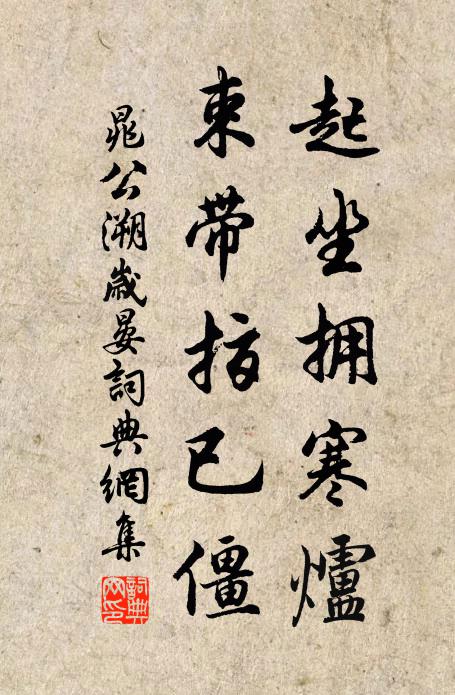 起坐拥寒爐
束帶指已僵
晁公溯歲晏詞典網集
詞典